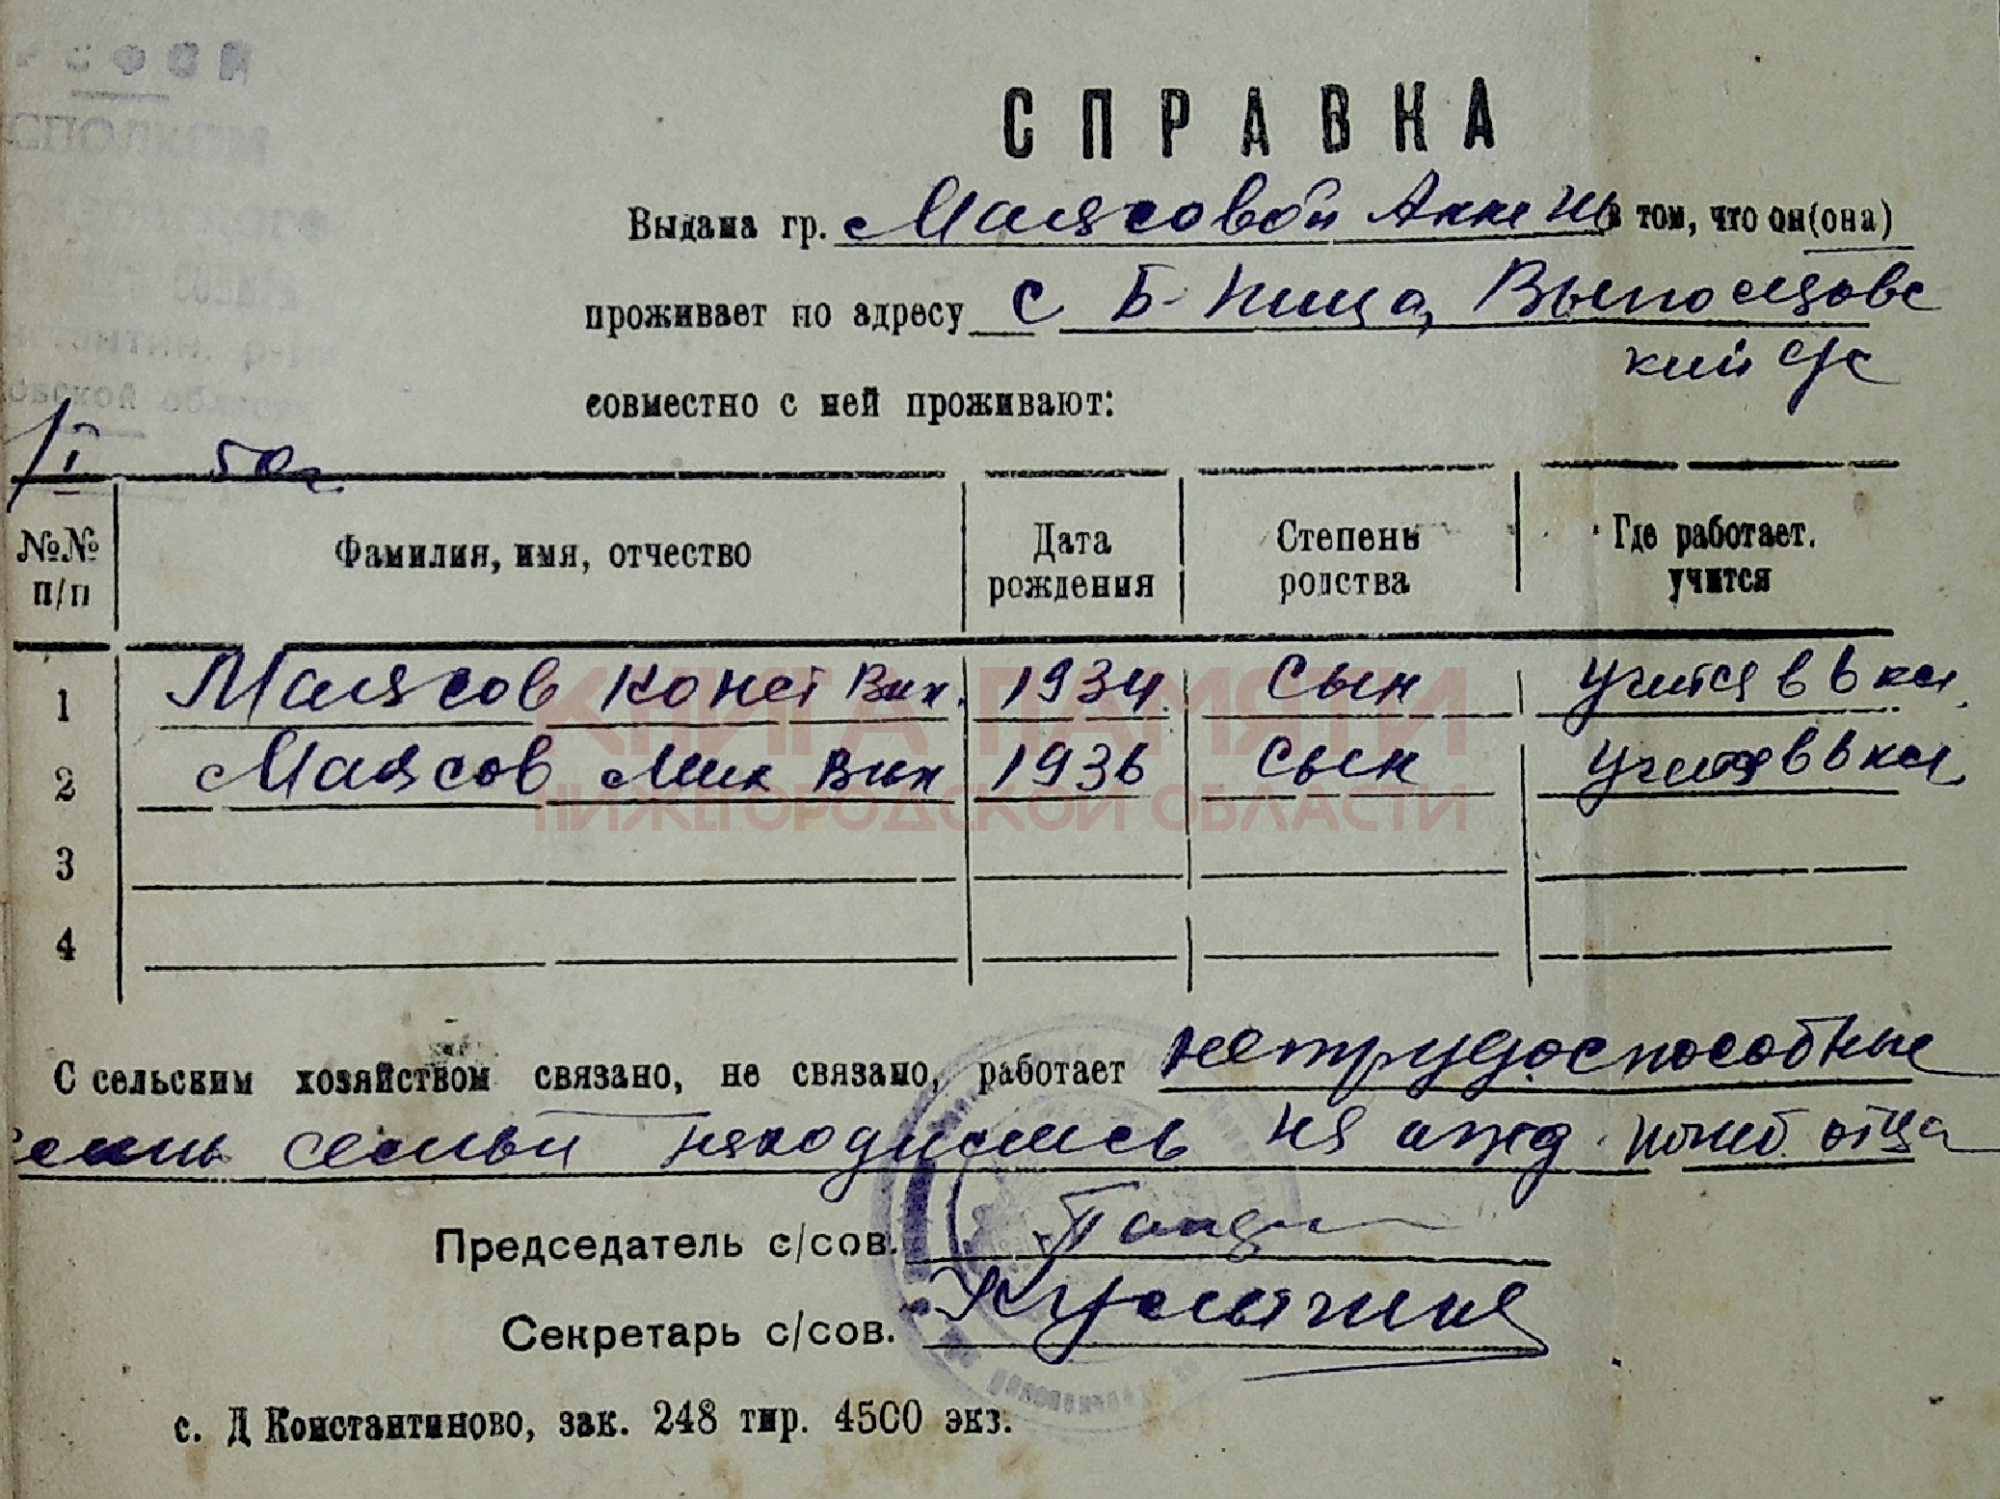 РСФСР
ИСПОЛКОМ
СПРАВКА
Выдана гр. Малясовой Анне Ив в том, что он(она)
проживает по адресу с Б-Пица, Выползовс
кий с/с
совместно с ней проживают:
I 50г
№№ п/п Фамилия, имя, отчество Дата рождения Степень родства Где работает. учится
1 Малясов Конст Вик. 1934 Сын Учится в 6 кл.
2 Малясов Мих Вик 1936 Сын Учится в 6 кл
3
4
С сельским хозяйством связано, не связано, работает нетрудоспособные
семьи находились на ижд. погиб. отца
Председатель с/сов.
Секретарь с/сов.
с. Д Константиново, зак. 248 тир. 4500 экз.
КНИГА ПАМЯТИ
НИЖЕГОРОДСКОЙ ОБЛАСТИ